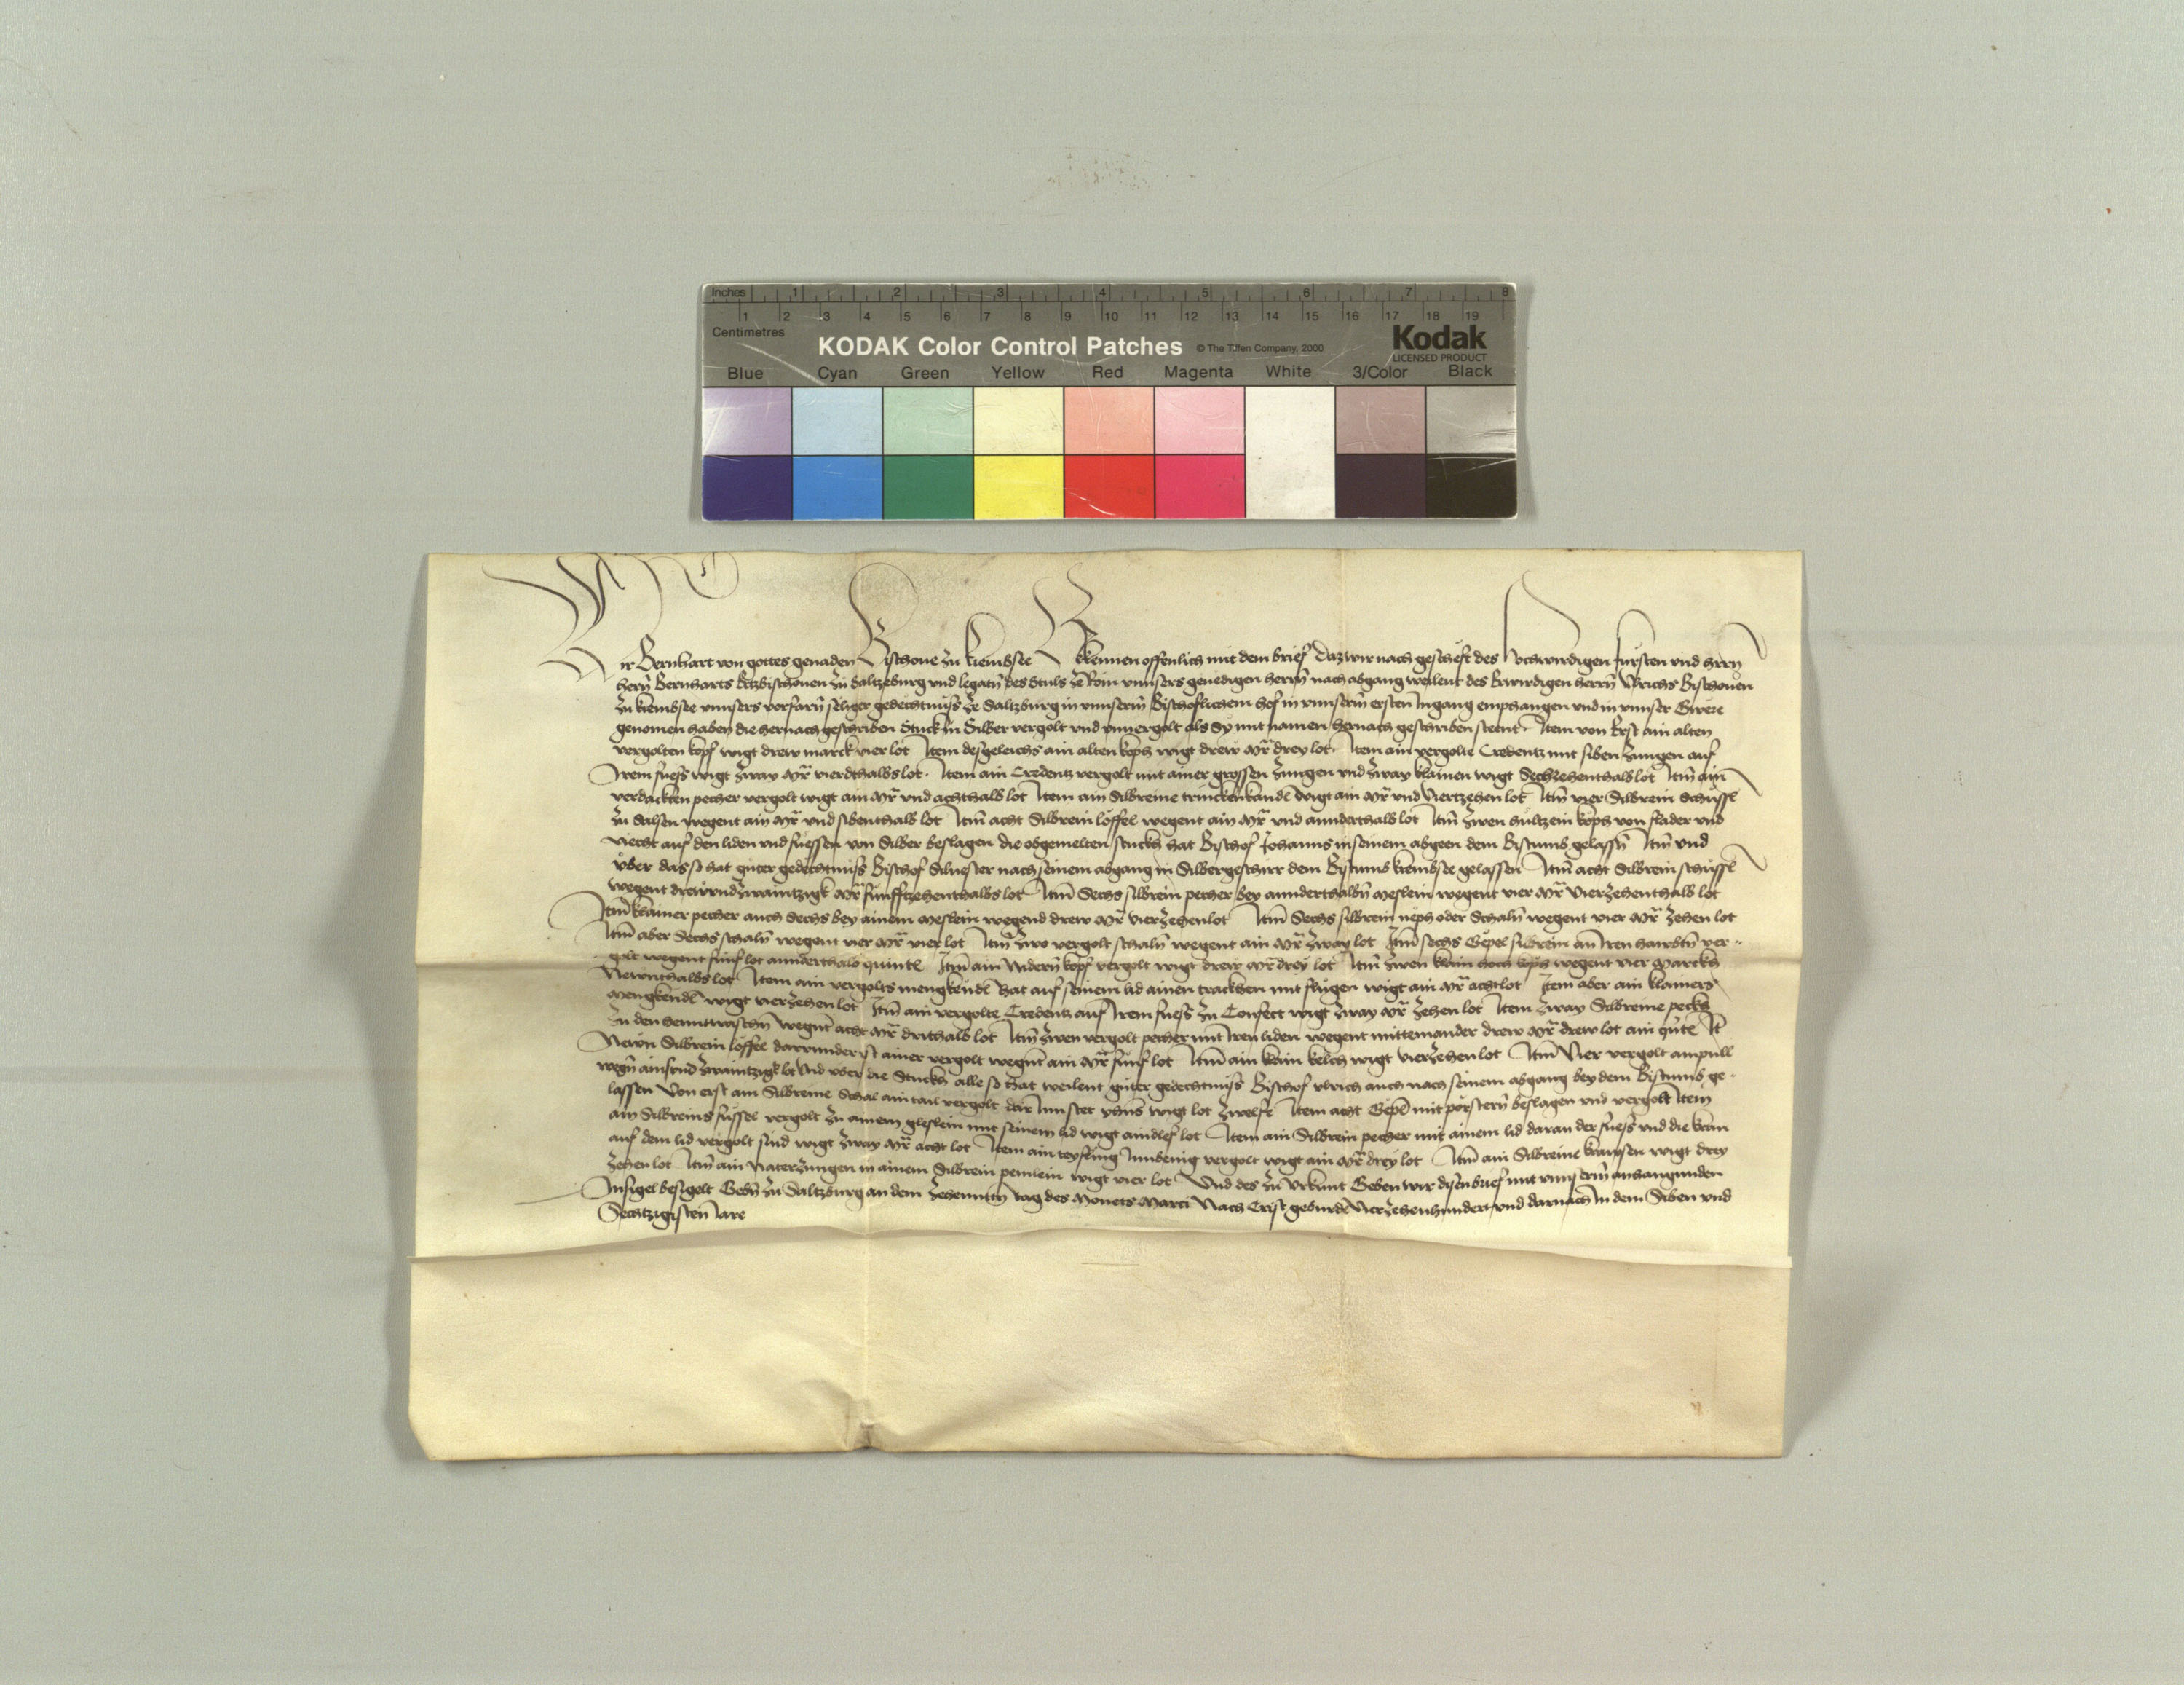 Inches 1 2 3 4 5 6 7 8
1 2 3 4 5 6 7 8 9 10 11 12 13 14 15 16 17 18 19
Centimetres
KODAK Color Control Patches © The Tiffen Company, 2000 Kodak
LICENSED PRODUCT
Blue Cyan Green Yellow Red Magenta White 3/Color Black
Wir Bernhart von gottes genaden Bischoue zu kiembsee Bekennen offenlich mit dem brief Daz wir nach gescheft des hochwirdigen fürsten vnd herrn
hern̄ Bernharts Ertzbischouen zu Saltzburg vnd legatn̄ des Stuls ze Rom vnnsers genedigen herrn̄ nach abgang weilent des Erwirdigen herrn̄ Vlrichs Bischouen
zu kiembsee vnnsers vorfarn̄ seliger gedechtnuss ze Saltzburg in vnnserm̄ Bischoflichem hof in vnnserm̄ ersten Ingang emphangen vnd in vnnser
genomen haben die hernach geschriben Stuck in Silber vergolt vnd vnuergolt als Sy mit namen hernach geschriben steent Item von Erst ain alten
vergolten kopf wigt drew marck vier lot Item desgeleichs ain alten koph wigt drew Mr̄ drey lot Item ain vergolte Credentz mit siben zungen auf
Irem fuess wigt zway Mr̄ vierdthalbs lot Item ain Credentz vergolt mit ainer grossen zungen vnd zway klainen wigt Sechzehenthalb lot Itm̄ ain
verdackten pecher vergolt wigt ain Mr̄ vnd achthalb lot Item ain Silbreine trinckhkandl wigt ain Mr̄ vnd Viertzehen lot Itm̄ vier Silbrein Schüssl
zu Salsen wegent ain Mr̄ vnd sibenthalb lot Itm̄ acht Silbrein löffel wegent ain Mr̄ vnd annderthalb lot Itm̄ zwen hültzein köph von flader vnd
viecht auf den liden vnd füessen von Silber beslagen die obgemelten stuckh hat Bischof Johanns in seinem abgeen dem Bistumb gelassn̄ Itm̄ vnd
über das so hat guter gedechtnuss Bischof Siluester nach seinem abgang in Silbergeschirr dem Bistumb kiembsee gelassen Itm̄ acht Silbrein schüssl
wegent drew vnd zwaintzigk Mr̄ fünfftzehenthalbs lot Itm̄ Sechs silbrein pecher bey annderthalbn̄ meslein wegent vier Mr̄ vierzehenthalb lot
Itm̄ klainer pecher auch Sechs bey ainem meslein wegend drew Mr̄ vierzehen lot Itm̄ Sechs silbrein neph oder Schaln̄ wegent vier Mr̄ zehen lot
Itm̄ aber Sechs schaln̄ wegent vier Mr̄ vier lot Itm̄ zwo vergolt schaln̄ wegent ain Mr̄ zway lot Itm̄ sechs Gepel silbrein an Iren hawbtn̄ ver
golt wegent fünf lot annderthalb quintl Itm̄ ain Nidern̄ kopf vergolt wigt drew Mr̄ drey lot Itm̄ zwen klain hoch köph wegent vier Marckh
Newnthalbs lot Item ain vergolts mengkendl hat auf seinem lid ainen trackhen mit flugen wigt ain Mr̄ acht lot Item aber ain klainers
Mengkendl wigt vierzehen lot Itm̄ ain vergolte Credentz auf Irem fuess zu Confect wigt zway Mr̄ zehen lot Item zway Silbreine peckh
zu den henntwaschn̄ wegnt̄ acht Mr̄ drithalb lot Itm̄ zwen vergolt pecher mit Iren liden wegent mitteinander drew Mr̄ drew lot ain qn̄tl It̄
Newn Silbrein löffel darunnder ist ainer vergolt wegnt̄ ain Mr̄ fünf lot Itm̄ ain klain kelch wigt vierzehen lot Itm̄ Vier vergolt ampull
wegn̄ ainsvnd zwaintzigk lot Vnd vber die Stuckh alle so hat weilent guter gedechtnuss Bischof vlrich auch nach seinem abgang bey dem Bistumb ge
lassen Von erst ain Silbreine Schal ain tail vergolt wigt lot zwelfe Item acht Gepel mit beslagen vnd vergolt Item
ain Silbreins füssel vergolt zu ainem gleslein mit seinem lid wigt aindlef lot Item ain Silbrein pecher mit ainem lid daran der fuess vnd die kran
auf dem lid vergolt sind wigt zway Mr̄ acht lot Item ain Innbenig vergolt wigt ain Mr̄ drey lot Itm̄ ain Silbreine wigt drey
zehen lot Itm̄ ain Naterzungen in ainem Silbrein wigt vier lot Vnd des zu vrkunt Geben wir disen brief mit vnnserm̄ anhangunden
Insigel besigelt Gebn̄ zu Saltzburg an dem zehennten tag des Monets Marci Nach Crist geburde vierzehenhundert vnd darnach In dem Siben vnd
Sechtzigisten Jare